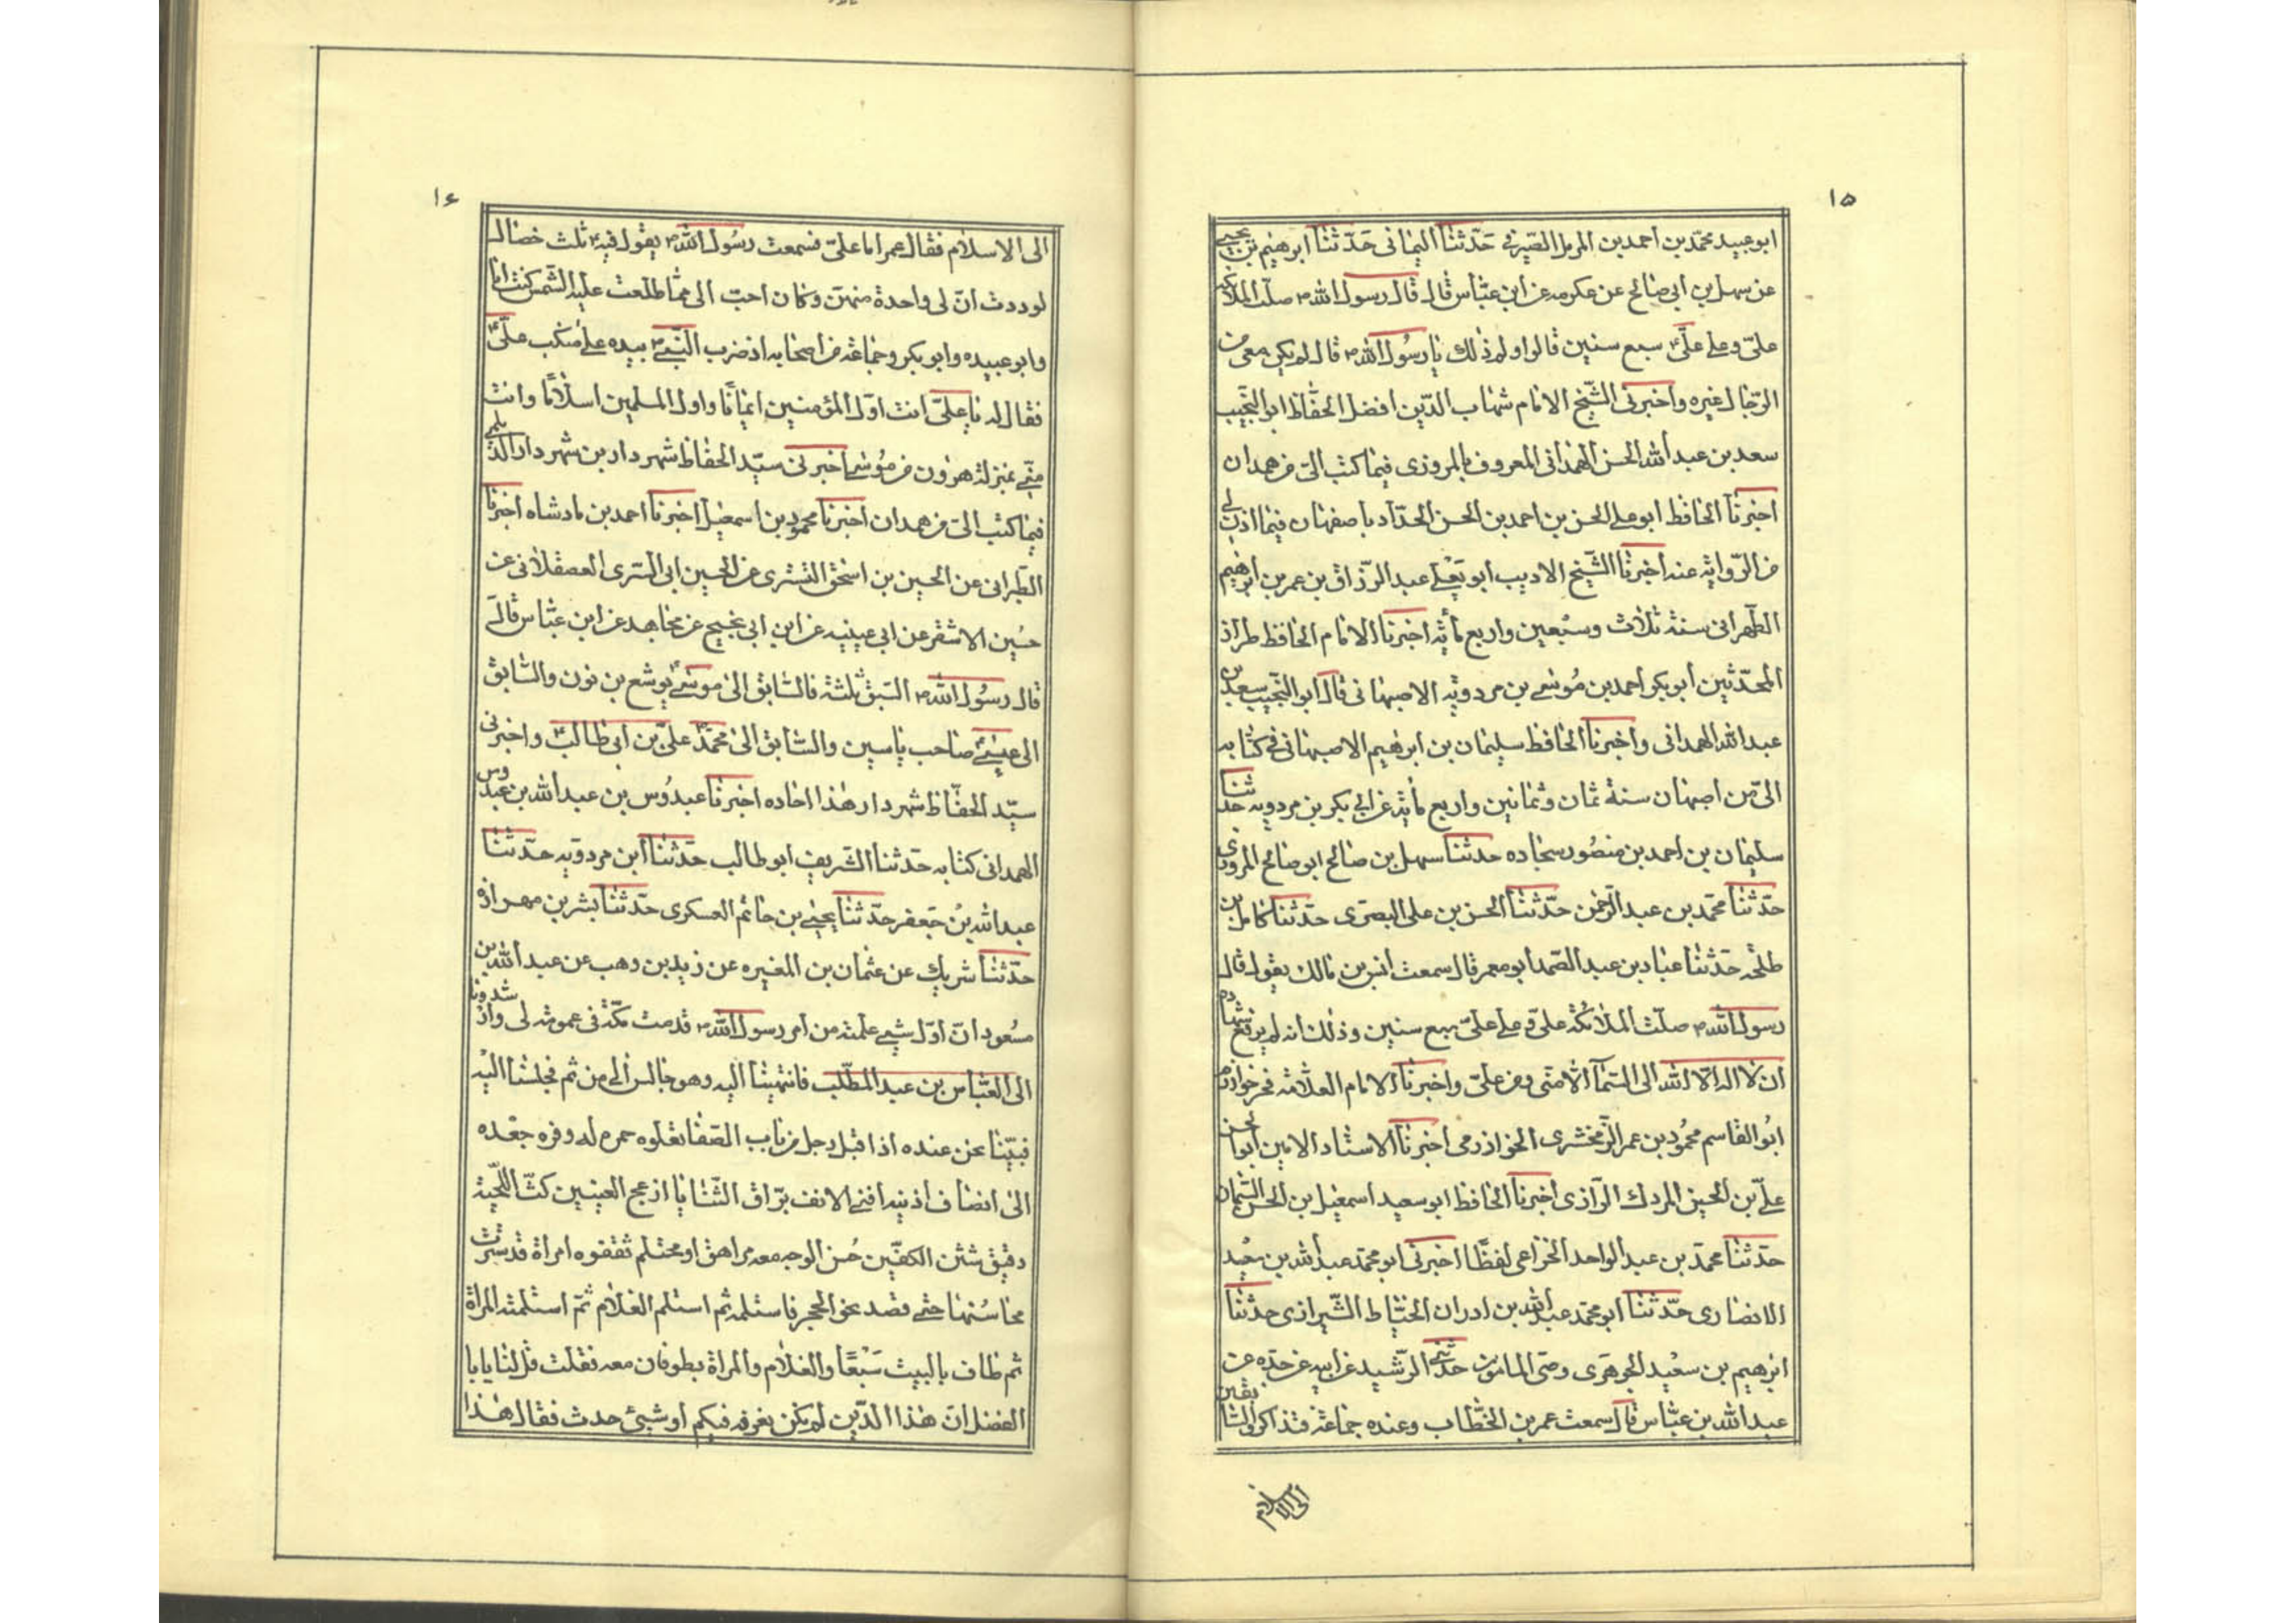 ١٥
ابوعبيد محمّد بن احمد بن المرمل الصّيرفي حَدّثنا اليمانى حَدّثنا ابرهيم بن يحيى
عن سهل بن ابى صالح عن عكرمه عن ابن عبّاس قال قال رسول الله صلّت الملائكة
علىّ وعلى علىّ سبع سنين قالوا ولم ذلك يا رسُول الله قال لم يكن معى من
الرّجال غيره واخبرنى الشّيخ الامام شهاب الدّين افضل الحفّاظ ابو النّجيب
سعد بن عبد الله الحسن الهمدانى المعروف بالمروزى فيما كتب الىّ من همدان
اخبرنا الحافظ ابو على الحسن بن احمد بن الحسن الحدّاد باصفهان فيما اذن لى
فى الرّواية عنه اخبرنا الشّيخ الاديب ابو يَعْلى عبد الرّزاق بن عمر بن ابرهيم
الطّهرانى سنة ثلاث وسبْعين واربع مأية اخبرنا الامام الحافظ طراز
المحدّثين ابو بكر احمد بن مُوسى بن مردويه الاصبهانى قال ابو النّجيب سعد بن
عبد الله الهمدانى واخبرنا الحافظ سليمان بن ابرهيم الاصبهانى فى كتابه
الىّ من اصبهان سنة ثمان وثمانين واربع مأية عن ابى بكر بن مردويه حدثنا
سليمان بن احمد بن منصُور سجاده حدثنا سهل بن صالح ابو صالح المروزى
حدّثنا محمّد بن عبد الرّحمن حدّثنا الحسن بن على البصرى حدّثنا كامل بن
طلحه حَدّثنا عباد بن عبد الصّمد ابو معمر قال سمعت انس بن مالك يقول قال
رسول الله صلّت الملائكة علىّ وعلى علىّ سبع سنين وذلك انه لم يرفع شهادة
ان لا اله الا الله الى السّماء الا منّى ومن علىّ واخبرنا الامام العلّامة فخر خوارزم
ابُو القاسم محمُود بن عمر الزّمخشرى الخوارزمى اخبرنا الاستاد الامين ابو الحسن
علىّ بن الحسين المردك الرّازى اخبرنا الحافظ ابو سعيد اسمعيل بن الحسن السّمان
حدّثنا محمّد بن عبد الواحد الخزاعى لفظًا اخبرنى ابو محمّد عبد الله بن سعيد
الانصارى حدّثنا ابو محمّد عبد الله بن ادران الخيّاط الشّيرازى حدثنا
ابرهيم بن سعيْد الجوهَرى وصى المامون حدّثنى الرّشيد عن ابيه عن جدّه عن
عبد الله بن عبّاس قال سمعت عمر بن الخطّاب وعنده جماعة فتذاكروا السّابقين
الى الاسلام
١٤
الى الاسلام فقال عمر اما علىّ فسمعت رسُول الله يقول فيه ثلث خصال
لوددت انّ لى واحدة منهنّ وكان احبّ الى ممّا طلعت عليه الشّمس كنت انا
وابو عبيده وابو بكر وجماعة من اصحابه اذ ضرب النّبى بيده على منكب علىّ
فقال له يا علىّ انت اوّل المؤمنين ايمانًا واول المسلمين اسلامًا وانت
منّى بمنزلة هرون من مُوسى اخبرنى سيّد الحفاظ شهردار بن شهردار الديلمى
فيما كتب الىّ من همدان اخبرنا محمود بن اسمعيل اخبرنا احمد بن بادشاه اخبرنا
الطّبرانى عن الحسين بن اسحق التسترى عن الحسين ابى السّرى العصقلانى عن
حسين الاشقر عن ابى عيينه عن ابن ابى نجيح عن مجاهد عن ابن عبّاس قال
قال رسُول الله السّبق ثلثة فالسّابق الى موسى يُوشع بن نون والسّابق
الى عيسى صاحب ياسين والسّابق الى محمّد علىّ بن ابى طالب واخبرنى
سيّد الحفّاظ شهردار هذا اجاده اخبرنا عبدوُس بن عبد الله بن عبدوس
الهمدانى كتابه حدّثنا الشّريف ابو طالب حدّثنا ابن مردويه حدّثنا
عبد الله بنُ جَعفر حدّثنا يحيى بن حاتم العسكرى حدّثنا بشر بن مهران
حدّثنا شريك عن عثمان بن المغيره عن زيد بن وهب عن عبد الله بن
مسْعود انّ اوّل شيى علمته من امر رسول الله قدمت مكّة فى عمومة لى وارشدونا
الى العبّاس بن عبد المطّلب فانتهينا اليه وهو جالس الى من ثم فجلسْنا اليْه
فبيّنا نحن عنده اذ اقبل رجل من باب الصّفا تعلوه حمرة له وفرة جعْده
الى انصاف اذنيه اقنى الانف برّاق الثّنايا ازعج العينين كثّ اللّحية
دقيق شثن الكفّين حُسن الوجه معه مراهق او محتلم تقفوه امراة قد سترت
محاسُنها حتى قصد نحو الحجر فاستلمه ثم استلم الغلام ثمّ استلمته المراة
ثم طاف بالبيت سَبْعًا والغلام والمراة يطوفان معه فقلت قل لنا يا با
الفضل انّ هذا الدّين لم يكن يعرفه فيكم أو شيئ حدث فقال هذا